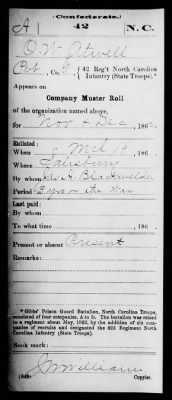 (Confederate.)
A 42 N.C.
O. W. Atwell
Pvt, Co. 42 Reg't North Carolina
Infantry (State Troops).*
Appears on
Company Muster Roll
of the organization named above,
for Nov & Dec, 186
Enlisted:
When Mch 19, 186
Where Salisbury
By whom A. Blackwelder
Period 3 yrs or the War
Last paid:
By whom
To what time , 186
Present or absent Present
Remarks:
*Gibbs' Prison Guard Battalion, North Carolina Troops,
consisted of four companies, A to D. The battalion was raised
to a regiment about May, 1862, by the addition of six com-
panies of recruits and designated the 42d Regiment North
Carolina Infantry (State Troops).
Book mark:
Williams
(642) Copyist.